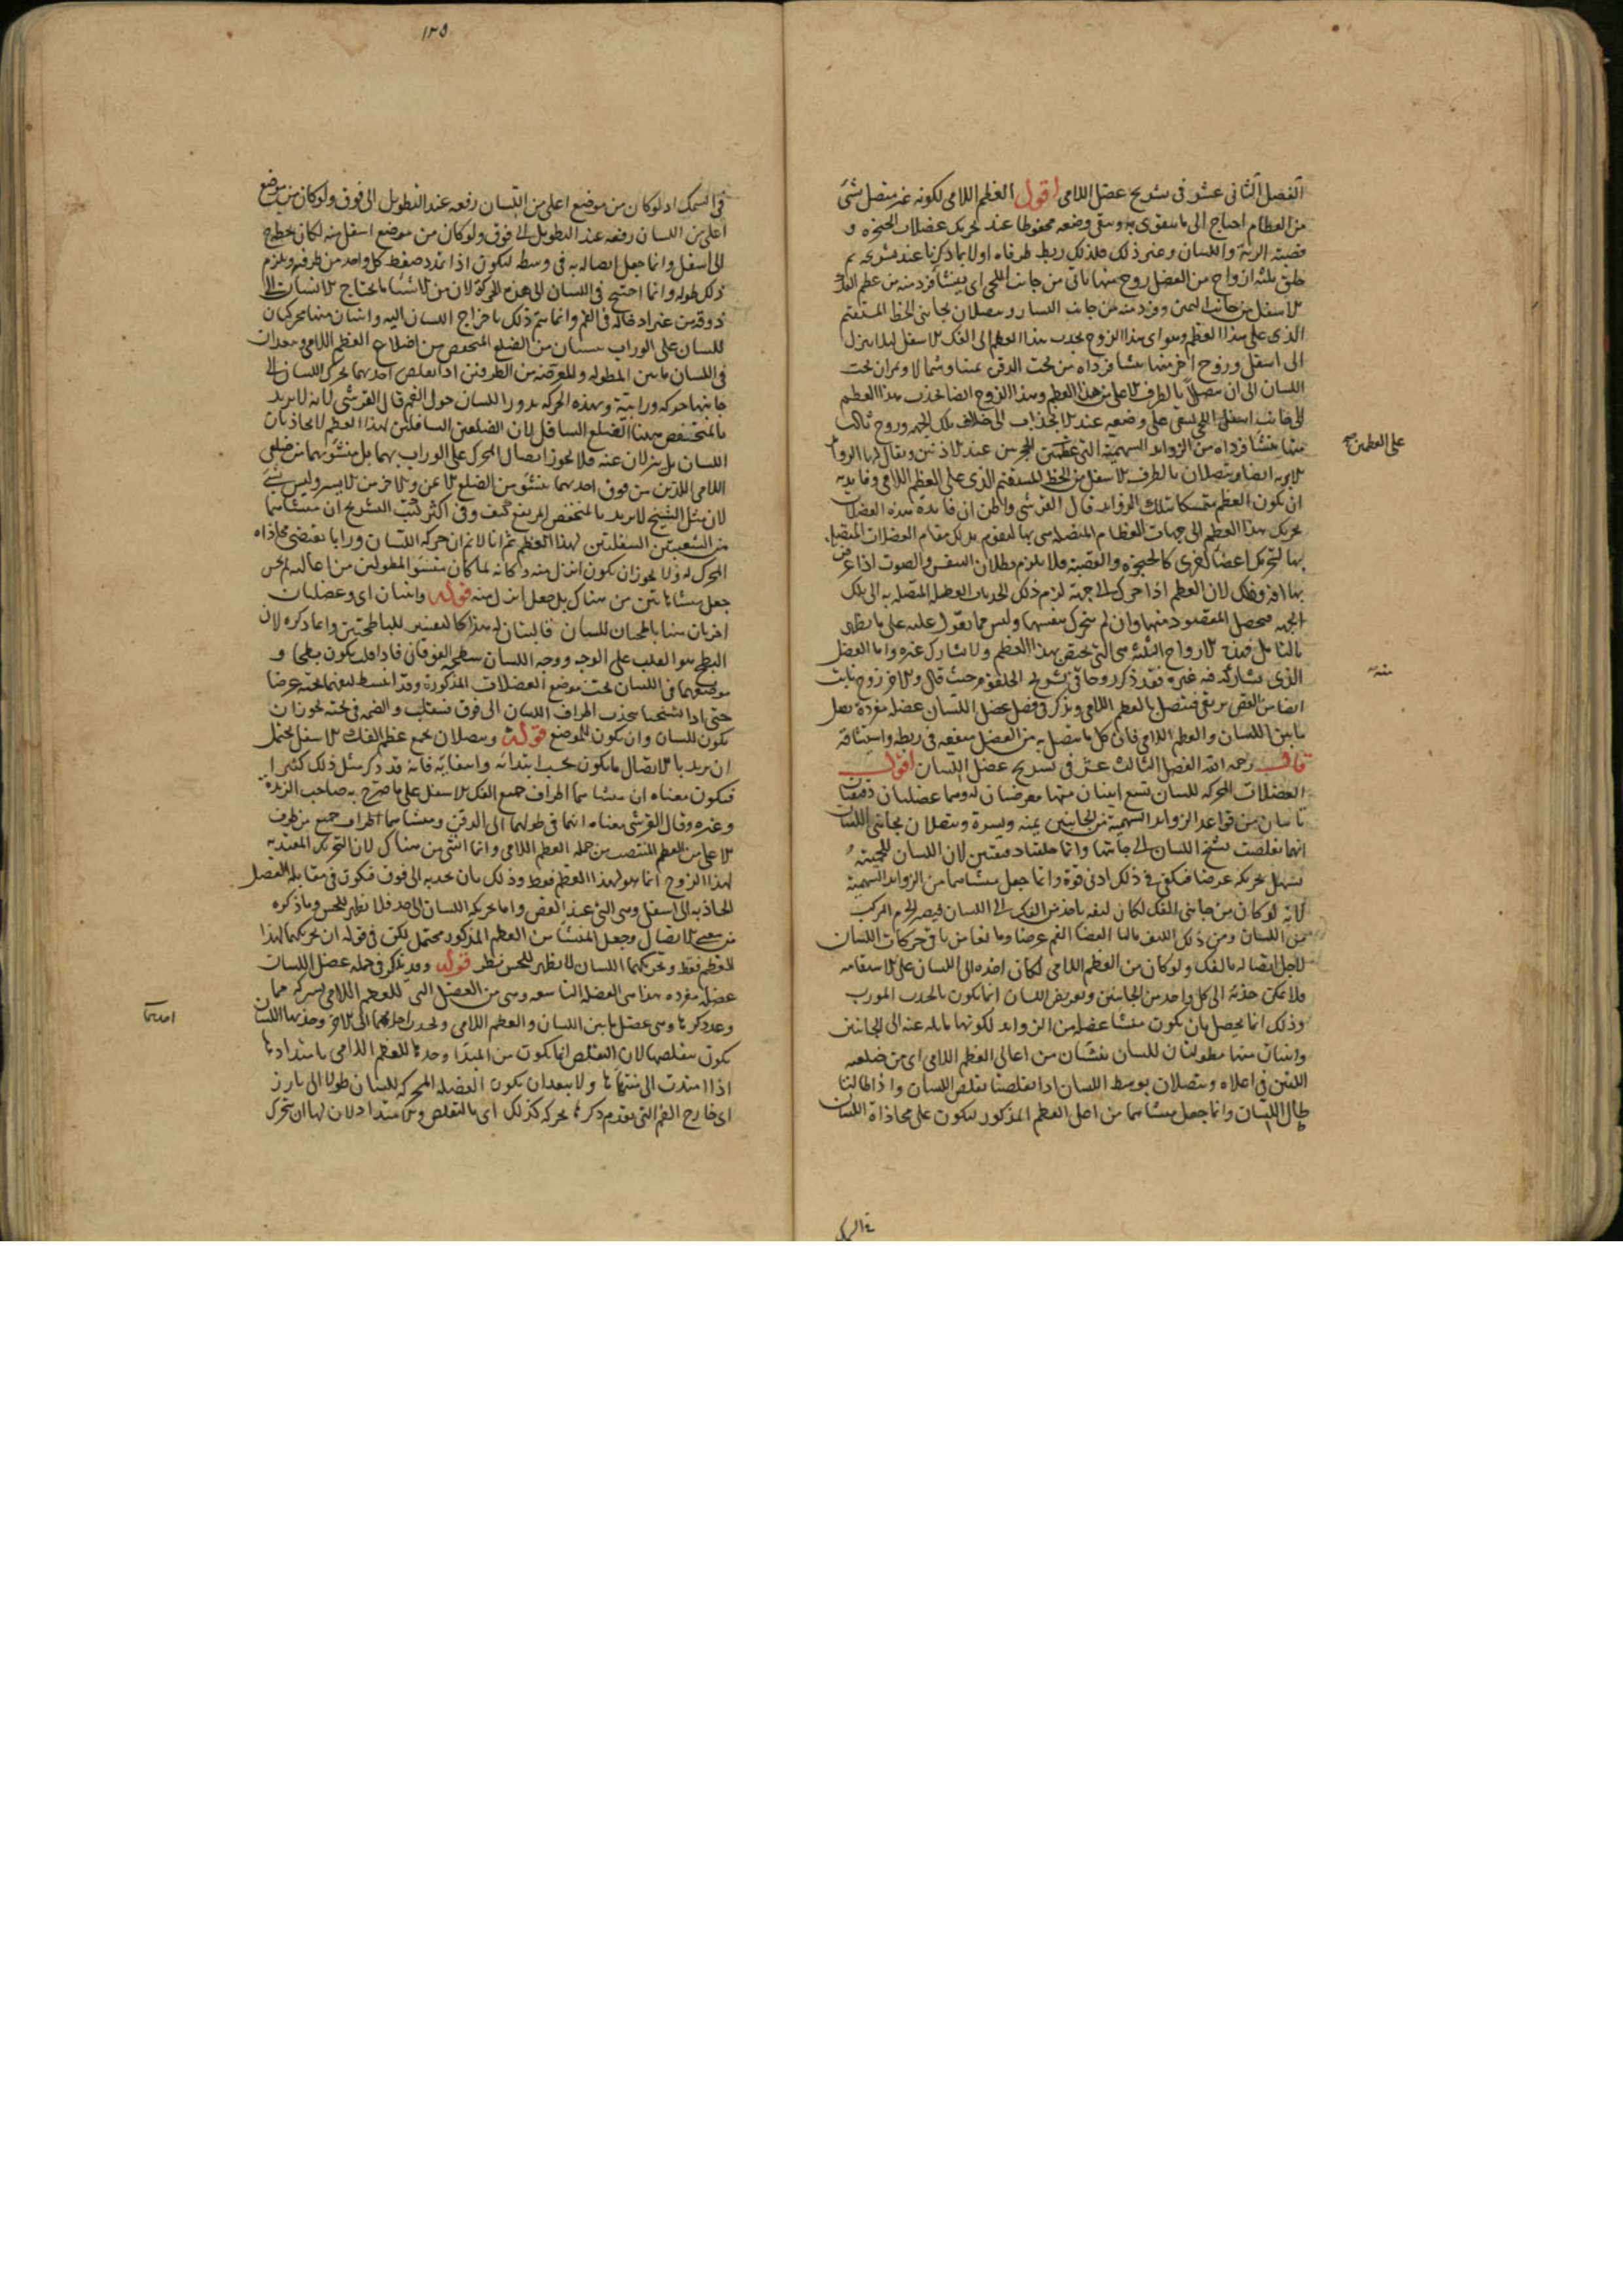 الفصل الثانى عشر فى تشريح عضل اللامى اقول العظم اللامى لكونه غير متصل بشئ
من العظام احتاج الى ما يتقوى به ويبقى وضعه محفوظا عند تحريك عضلات الحنجرة و
قصبة الرية واللسان وغير ذلك فلذلك ربط طرفاه اولا بما ذكرنا عند تشريحه ثم
خلق ثلثة ازواج من العضل زوج منها ياتى من جانب اللحى اى ينشأ فرد منه من عظم الفك
الاسفل من جانب اليمين وفرد منه من جانب اليسار ويتصلان بجانبى الخط المستقيم
الذى على هذا العظم وهو اى هذا الزوج يجذب هذا العظم الى الفك الاسفل
الى اسفل وزوج آخر منها ينشأ فرداه من تحت الذقن يمينا وشمالا ويمران تحت
اللسان الى ان يتصلا بالطرف الاعلى من هذا العظم وهذا الزوج ايضا يجذب هذا العظم
الى جانب اسفل اللحى ليبقى على وضعه عند الانجذاب الى خلاف تلك الجهة وزوج ثالث
منها ينشأ فرداه من الزوايد السهمية التى عند الاذنين ويقال لها الزوايد
الابرية ايضا ويتصلان بالطرف الاسفل من الخط المستقيم الذى على العظم اللامى وفايدته
ان يكون العظم متمسكا بتلك الزوايد قال القرشى واظن ان فايدة هذه العضلات
تحريك هذا العظم الى جهات العظام المتصلة هى بها ليقوم بدل مقام العضلات المتصلة
بها لتحريك اعضا اخرى كالحنجرة والقصبة فلا يلزم بطلان النفس والصوت اذا عرض
بها آفة وذلك لان العظم اذا تحرك الى جهة لزم ذلك انجذاب العضلة المتصلة به الى تلك
الجهة فيحصل المقصود منها وان لم تتحرك بنفسها وليس مما يعول عليه على ما يظهر
بالتامل فهذه الازواج الثلثة هى التى تختص بهذا العظم ولا يشارك غيره واما العضل
الذى يشاركه فيه غيره فقد ذكر زوجا فى تشريح الحلقوم حيث قال والآخر زوج نابت
ايضا من القص يرتقى فيتصل بالعظم اللامى ويذكر فى فصل عضل اللسان عضلة مفردة تصل
ما بين اللسان والعظم اللامى فان كل ما يتصل به من العضل منفعة فى ربطه واستيثاقه
قال رحمه الله الفصل الثالث عشر فى تشريح عضل اللسان اقول
العضلات المحركة للسان تسع اثنان منها معرضتان له وهما عضلتان دقيقتان
تاتيان من قواعد الزوايد السهمية من الجانبين يمنة ويسرة وتتصلان بجانبى اللسان
ايهما تقلصت تشنج اللسان الى جانبها وانما خلقتا دقيقتين لان اللسان للحميته
يسهل تحريكه عرضا فيكفى فى ذلك ادنى قوة وانما جعل منشأهما من الزوايد السهمية
لانه لو كان من جانبى الفك لكان ليفه ياخذ من الفك الى اللسان فيصير الجرم المركب
من اللسان ومن ذلك الليف مالئا لفضا الفم عرضا وما نعا من باقى حركات اللسان
لاجل اتصاله بالفك ولو كان من العظم اللامى لكان اخذه الى اللسان على الاستقامة
فلا يمكن جذبه الى كل واحد من الجانبين وتعريض اللسان انما يكون بالجذب المورب
وذلك انما يحصل بان يكون منشأ عضله من الزوايد لكونها مايلة عنه الى الجانبين
واثنان منها مطولتان للسان ينشآن من اعالى العظم اللامى اى من ضلعيه
اللتين فى اعلاه ويتصلان بوسط اللسان اذا تقلصتا تقلص اللسان واذا طالتا
طال اللسان وانما جعل منشأهما من اصل العظم المذكور ليكون على محاذاة اللسان
على العظمين صح
منه
فى السمك
١٢٥
فى السمك اذ لو كان من موضع اعلى من اللسان رفعه عند التطويل الى فوق ولو كان من موضع
اعلى من اللسان رفعه عند التطويل الى فوق ولو كان من موضع اسفل منه لكان يحطه
الى اسفل وانما جعل اتصاله به فى وسطه ليكون اذا تمدد ضغط كل واحد من طرفيه ويلزم
ذلك طوله وانما احتيج فى اللسان الى هذه الحركة لان من الاشيا ما يحتاج الانسان الى
ذوقه من غير ادخاله فى الفم وانما يتم ذلك باخراج اللسان اليه واثنان منها يحركان
اللسان على الوراب ينشآن من الضلع المنخفض من اضلاع العظم اللامى وينفذان
فى اللسان ما بين المطولة والمعرضة من الطرفين اذا تقلص احدهما تحرك اللسان الى
جانبها حركة ورابية وبهذه الحركة يدور اللسان حول الفم قال القرشى لانه لا يريد
بالمنخفض ههنا الضلع السافل لان الضلعين السافلين لهذا العظم لا يحاذيان
اللسان بل ينزلان عنه فلا يجوز اتصال المحرك على الوراب بهما بل منشؤهما من ضلعى
اللامى اللذين من فوق احدهما ينشؤ من الضلع الايمن والآخر من الايسر وليس بشئ
لان مثل الشيخ لا يريد بالمنخفض المرتفع كيف وفى اكثر كتب التشريح ان منشأهما
من الشعبتين السفليتين لهذا العظم ثم انا لا نم ان حركة اللسان ورابا تقتضى محاذاة
المحرك له ولا يجوز ان يكون انزل منه وكانه لما كان منشؤ المطولتين من اعاليه لم يحسن
جعل منشأ هاتين من هناك بل جعل انزل منه قوله واثنان اى وعضلتان
اخريان منها باطحتان للسان قالبتان له هذا كالتفسير للباطحتين واعاد ذكره لان
البطح هو القلب على الوجه ووجه اللسان سطحه الفوقانى فاذا قلب يكون بطحا و
موضعهما فى اللسان تحت موضع العضلات المذكورة وقد انبسط ليفهما تحته عرضا
حتى اذا تشنجتا جذبت اطراف اللسان الى فوق فينقلب والضمير فى تحته يجوز ان
يكون للسان وان يكون للموضع قوله ويتصلان بجميع عظم الفك الاسفل يحتمل
ان يريد بالاتصال ما يكون بحسب ابتدائه وانتهائه فانه قد ذكر مثل ذلك كثيرا
فيكون معناه ان منشأهما اطراف جميع الفك الاسفل على ما صرح به صاحب الزبدة
وغيره وقال القرشى معناه انهما فى طولهما الى الذقن ومنشأهما اطراف جميع من طرف
الاعلى من العظم المنتصب من جملة العظم اللامى وانما انشئ من هناك لان التحريك المعتد به
لهذا الزوج انما هو لهذا العظم فقط وذلك بان يجذبه الى فوق فيكون فى مقابلة العضل
الجاذبة الى اسفل وهى التى عند القص واما تحريكه اللسان الى ضد فلا يظهر للحس وما ذكره
من معنى الاتصال وجعل المنشأ من العظم المذكور محتمل لكن فى قوله ان تحريكهما لهذا
العظم فقط وتحريكهما اللسان لا يظهر للحس نظر قوله وقد يذكر فى جملة عضل اللسان
عضلة مفردة هذا هى العضلة التاسعة وهى من العضل التى للعظم اللامى
وقد ذكرها وهى عضل ما بين اللسان والعظم اللامى وتجذب احدهما الى الآخر وجذبها اللسان
يكون بتقلصها لان التقلص انما يكون من المبدأ وجذبها للعظم اللامى بامتدادها
اذا امتدت الى منتهاها ولا يبعد ان يكون العضلة المحركة للسان طولا الى بارز
اى خارج الفم التى تقدم ذكرها تحركه كذلك اى بالتقلص والامتداد لان لها ان تتحرك
احدهما